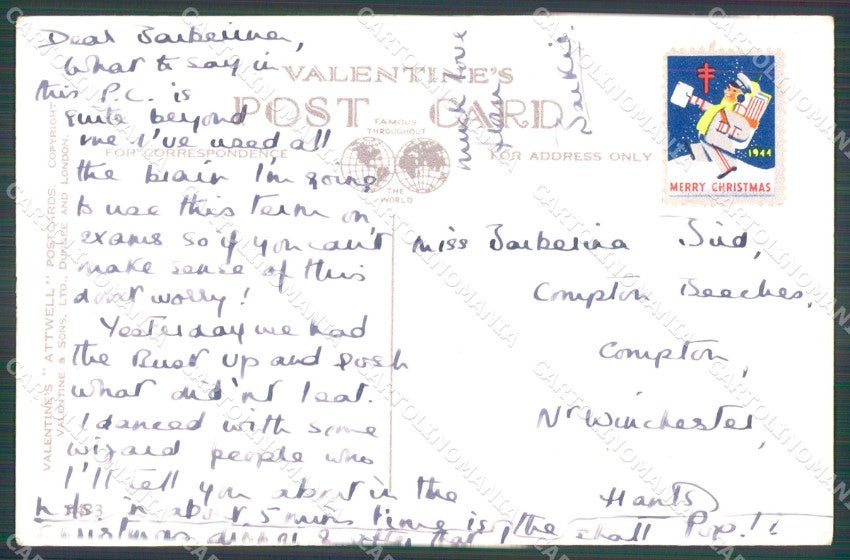 Dear Barberina,
What to say in
this P.C. is
quite beyond
me I've used all
the brain I'm going
to use this term on
exams so if you can't
make sense of this
don't worry!
Yesterday we had
the Bust up and gosh
what did'nt I eat.
I danced with some
wizard people who
I'll tell you about in the
hols. In about 5 mins time is the
Christmas dinner & after that I shall Pop!!
much love
from
VALENTINE'S
POST CARD
FAMOUS
THROUGHOUT
THE
WORLD
FOR CORRESPONDENCE
FOR ADDRESS ONLY
MERRY CHRISTMAS
1944
Miss Barberina Bird,
Compton Beeches,
Compton,
Nr Winchester,
Hants
VALENTINE'S "ATTWELL" POSTCARDS COPYRIGHT
VALENTINE & SONS, LTD., DUNDEE AND LONDON.
CARTOLINOMANIA